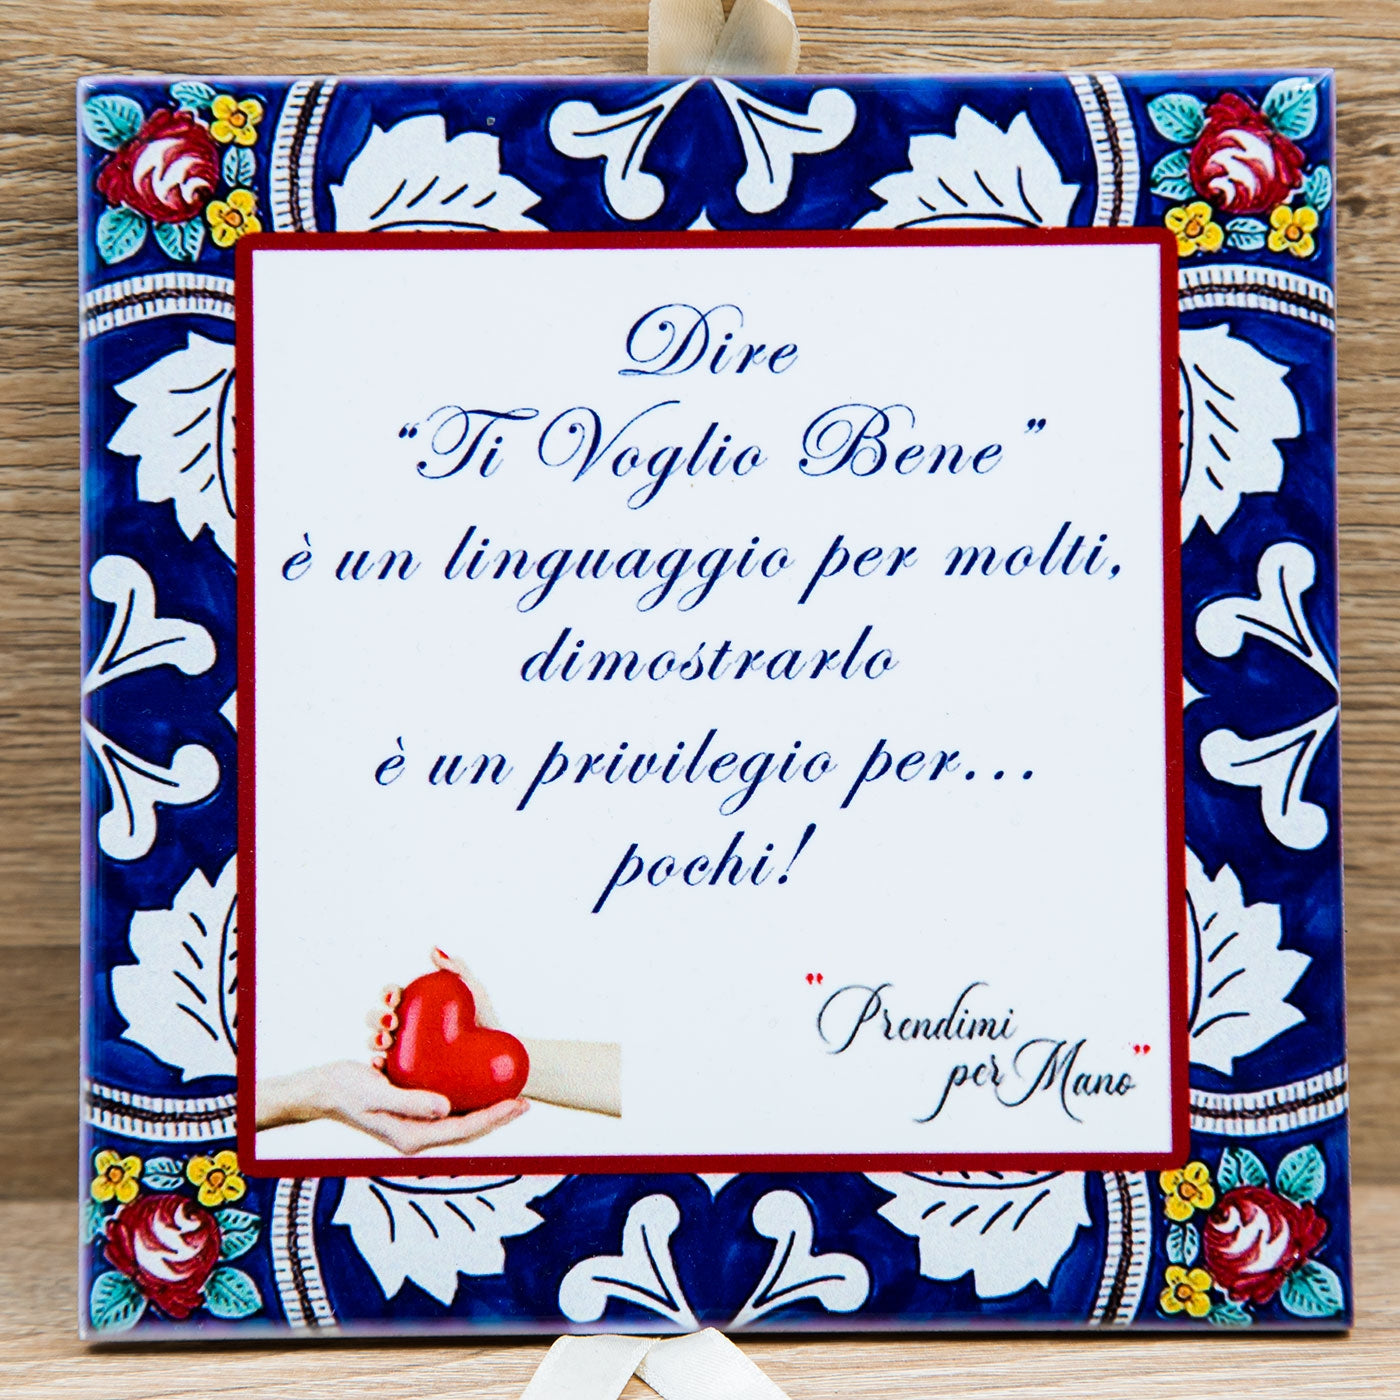 Dire
“Ti Voglio Bene”
è un linguaggio per molti,
dimostrarlo
è un privilegio per...
pochi!
"Prendimi
per Mano"